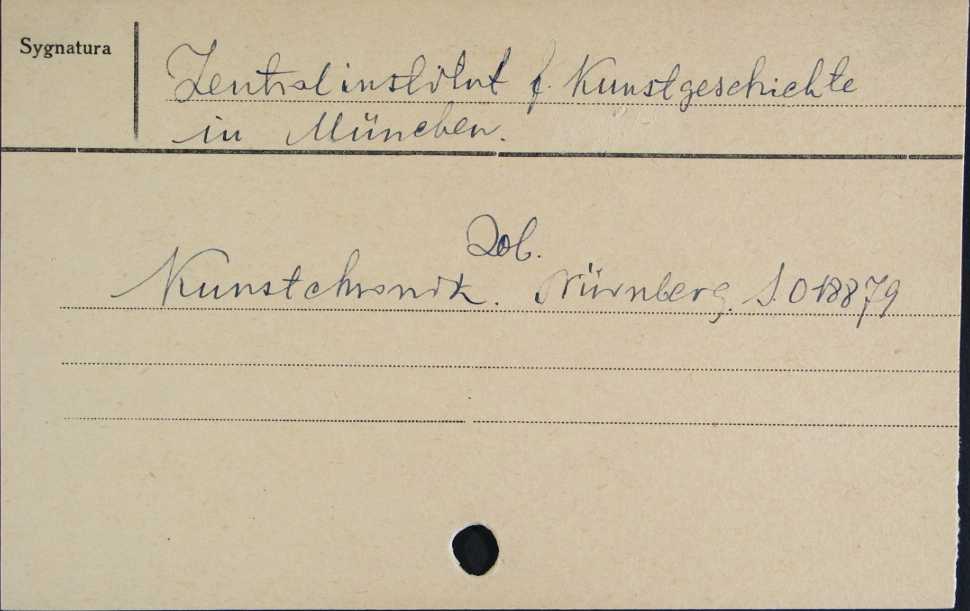 Sygnatura
Zentralinstitut f. Kunstgeschichte
in München.
Zob.
Kunstchronik. Nürnberg. S.018879